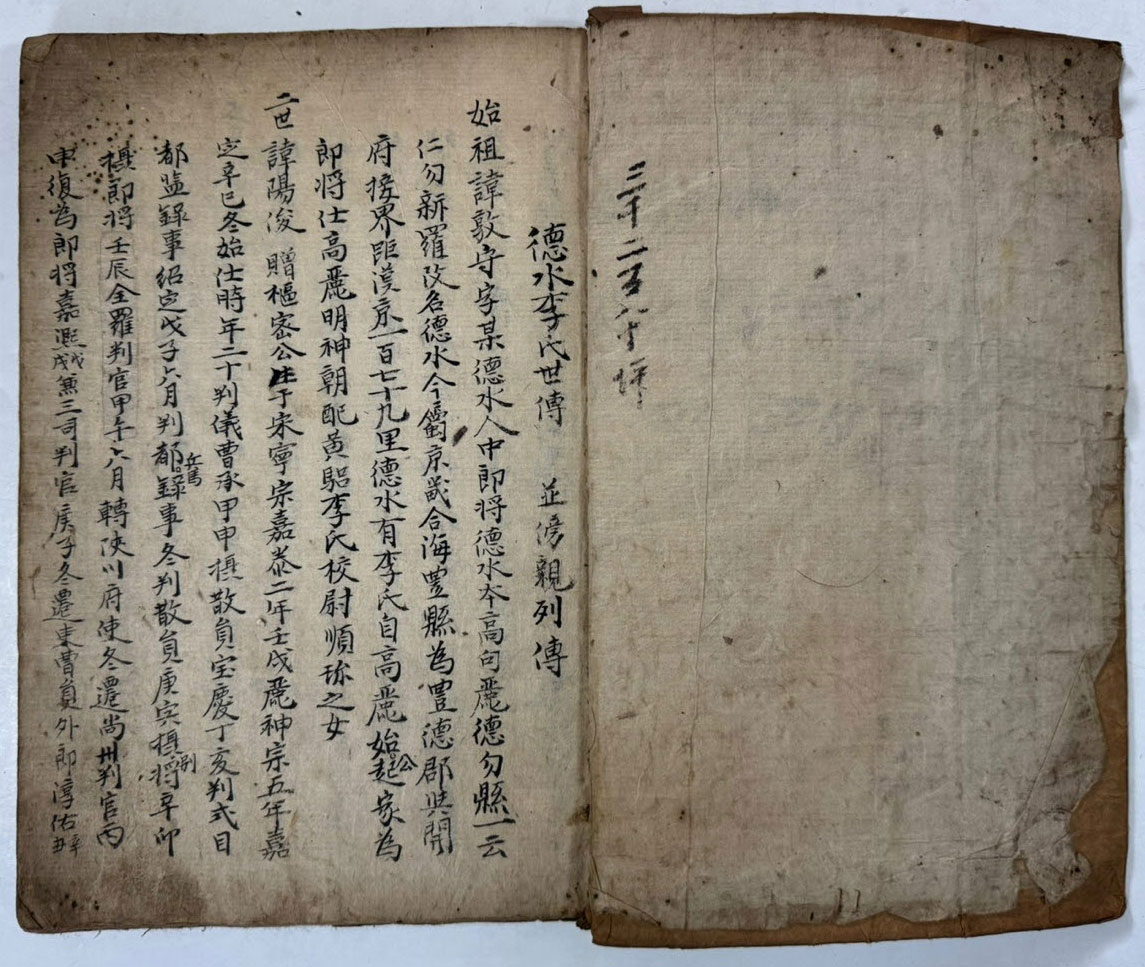 三千二百八十坪
德水李氏世傳 並傍親列傳
始祖諱敦守字某德水人中郎將德水本高句麗德勿縣一云
仁勿新羅改名德水今屬京畿合海豊縣為豊德郡與開
府接界距漢京一百七十九里德水有李氏自高麗始公起家為
郎將仕高麗明神朝配黃驪李氏校尉順珎之女
二世諱陽浚 贈樞密公生于宋寧宗嘉泰二年壬戌麗神宗五年嘉
定辛巳冬始仕時年二十判儀曹承甲申攝散員宝慶丁亥判式目
都監錄事紹定戊子六月判都兵馬錄事冬判散員庚寅攝別將辛卯
攝郎將壬辰全羅判官甲午六月轉陜川府使冬遷尚州判官丙
申復為郎將嘉熙戊戌兼三司判官庚子冬遷東曹員外郎淳佑辛丑